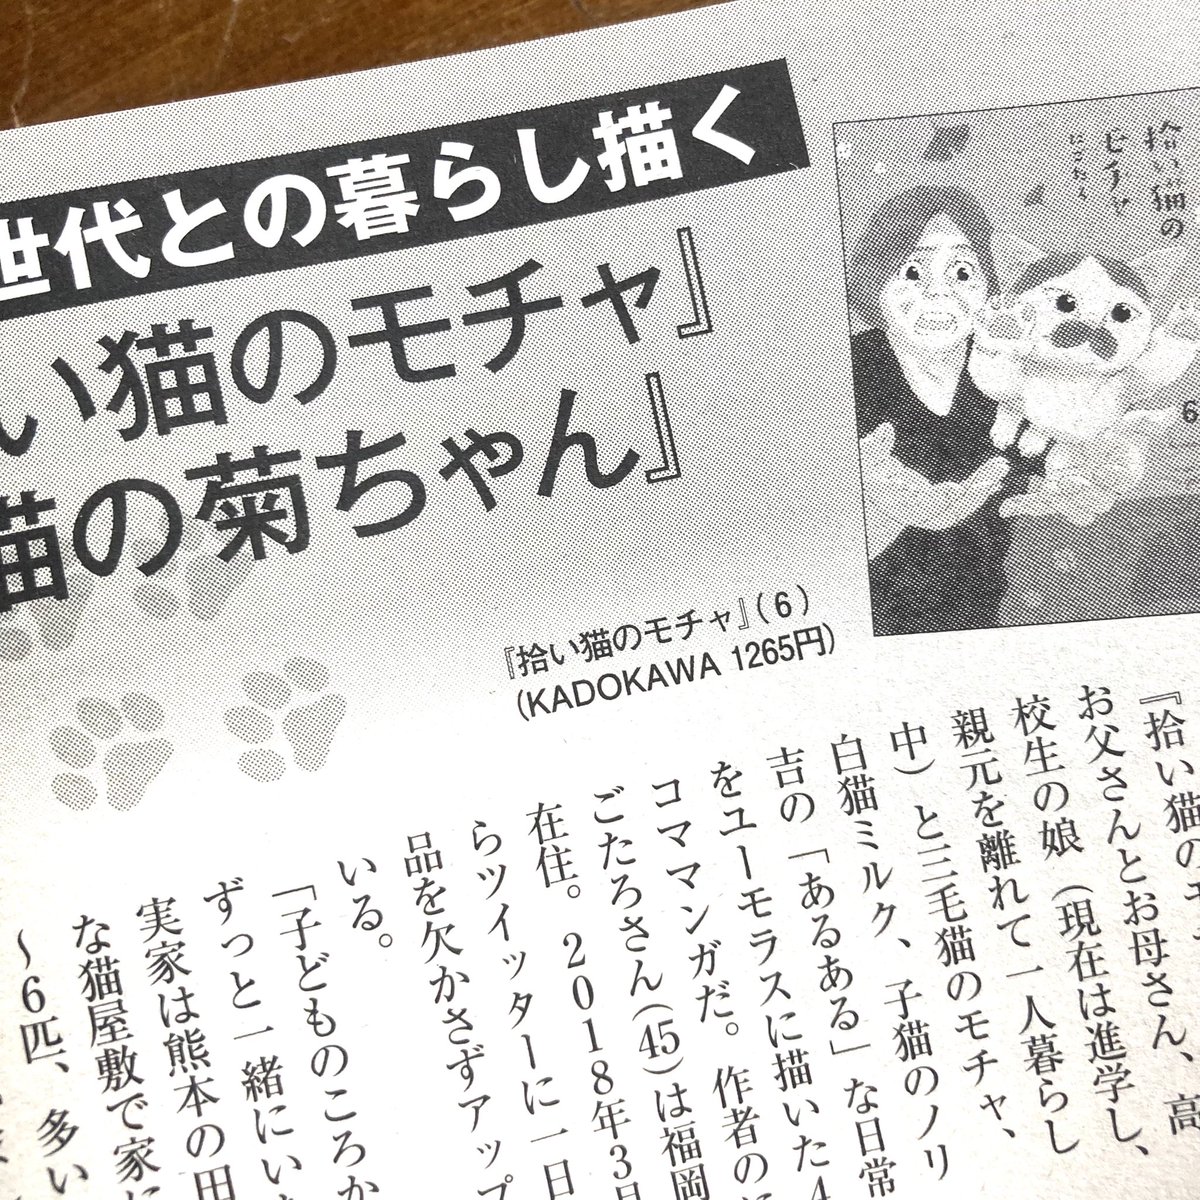 世代との暮らし描く
い猫のモチャ』
猫の菊ちゃん』
拾い猫の
モチャ
にごたろ
6
『拾い猫のモチャ』（6）
(KADOKAWA 1265円)
『拾い猫のモ
お父さんとお母さん、高
校生の娘（現在は進学し、
親元を離れて一人暮らし
中）と三毛猫のモチャ、
白猫ミルク、子猫のノリ
吉の「あるある」な日常
をユーモラスに描いた4
コママンガだ。作者のに
ごたろさん(45)は福岡
在住。2018年3月
らツイッターに一日
品を欠かさずアップ
いる。
「子どものころか
ずっと一緒にい
実家は熊本の田
な猫屋敷で家に
～6匹、多い